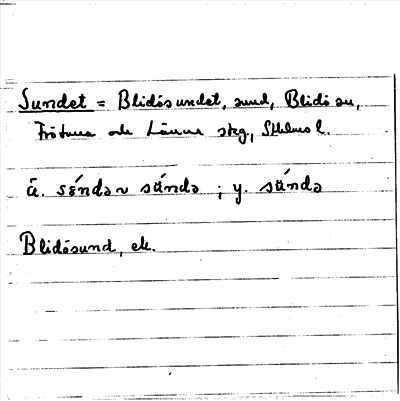 Sundet = Blidösundet, sund, Blidö sn,
Frötuna och Länna skg, Sthlms l.
ä. sɛ́ndən sʉ́ndə ; y. sʉ́ndə
Blidösund, ek.